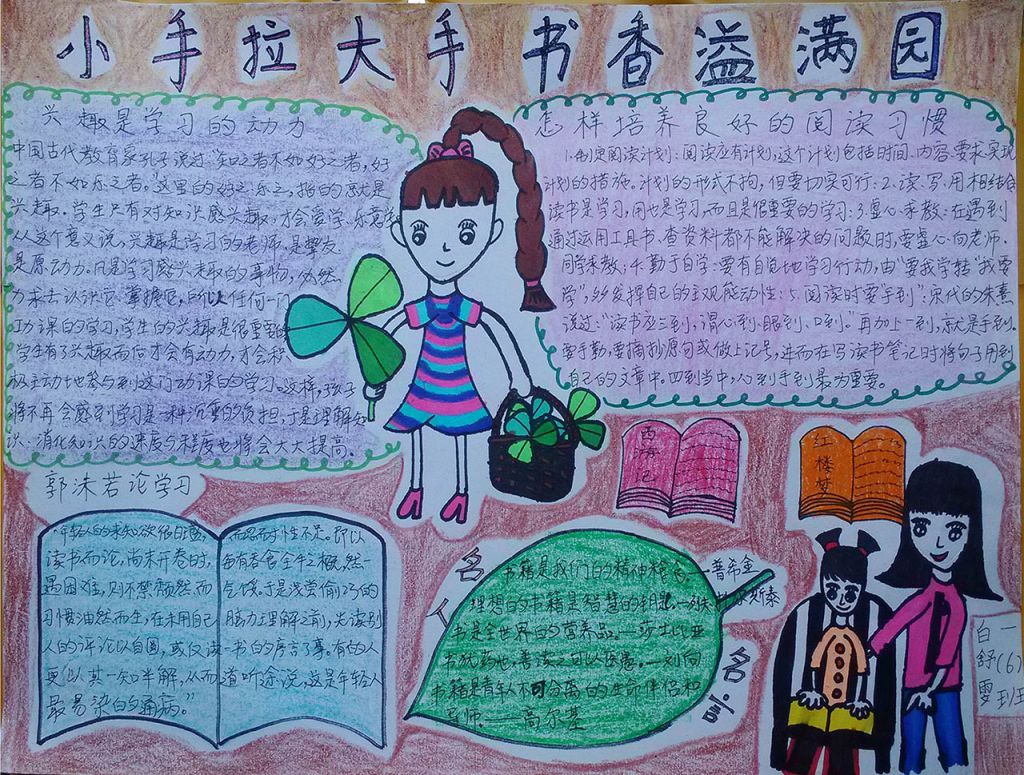 小手拉大手 书香溢满园
兴趣是学习的动力
中国古代教育家孔子说过:"知之者不如好之者,好
之者不如乐之者。"这里的好之、乐之,指的意就是
兴趣。学生只有对知识感兴趣,才会爱学、乐意学
从这个意义说,兴趣是学习的老师,是挚友
是原动力。凡是学习感兴趣的事物,必然
力求去认识它、掌握它,所以任何一门
功课的学习,学生的兴趣是很重要的
学生有了兴趣而后才会有动力,才会积
极主动地参与到这门功课的学习。这样,孩子
将不再会感到学习是一种沉重的负担,于是理解知
识、消化知识的速度与程度也将会大大提高。
怎样培养良好的阅读习惯
1.制定阅读计划:阅读应有计划,这个计划包括时间、内容、要求、实现
计划的措施。计划的形式不拘,但要切实可行:2、读、写、用相结合
读书是学习,用也是学习,而且是很重要的学习:3.虚心求教:在遇到
通过运用工具书、查资料都不能解决的问题时,要虚心向老师、
同学求教;4.勤于自学:要有自觉地学习行动,由"要我学转"我要
学",充分发挥自己的主观能动性:5.阅读时要"手到":宋代的朱熹
说过:"读书应三到,谓心到、眼到、口到。"再加上一到,就是手到。
要手勤,要摘抄原句或做上记号,进而在写读书笔记时将句子用到
自己的文章中。四到当中,心到手到最为重要。
西游记
红楼梦
郭沫若论学习
"年轻人的求知欲很旺盛,
读书而论,尚未开卷时,
遇困难,则不禁颓然而
习惯油然而生,在未用自己
人的评论以自圆,或仅读
更以其一知半解,从而
最易染的通病。"
而忍耐性不足。即以
每有吞舍全牛之概,然一
气馁。于是浅尝偷巧的
脑力理解之前,先读别
一书的序言了事。有的人
道听途说,这是年轻人
名人名言
书籍是我们的精神粮食。——普希金
理想的书籍是智慧的钥匙。——列夫·托尔斯泰
书是全世界的营养品。——莎士比亚
书犹药也,善读之可以医愚。——刘向
书籍是青年人不可分离的生命伴侣和
导师——高尔基
一(6)班
白舒雯